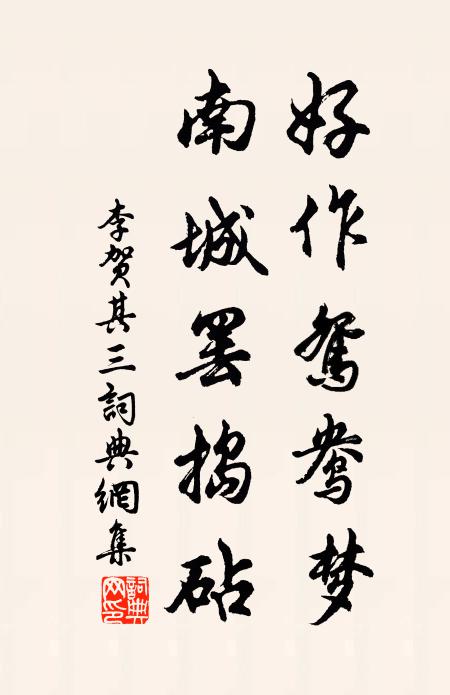 好作鸳鸯梦
南城罢捣砧
李贺其三詞典網集
詞典网印